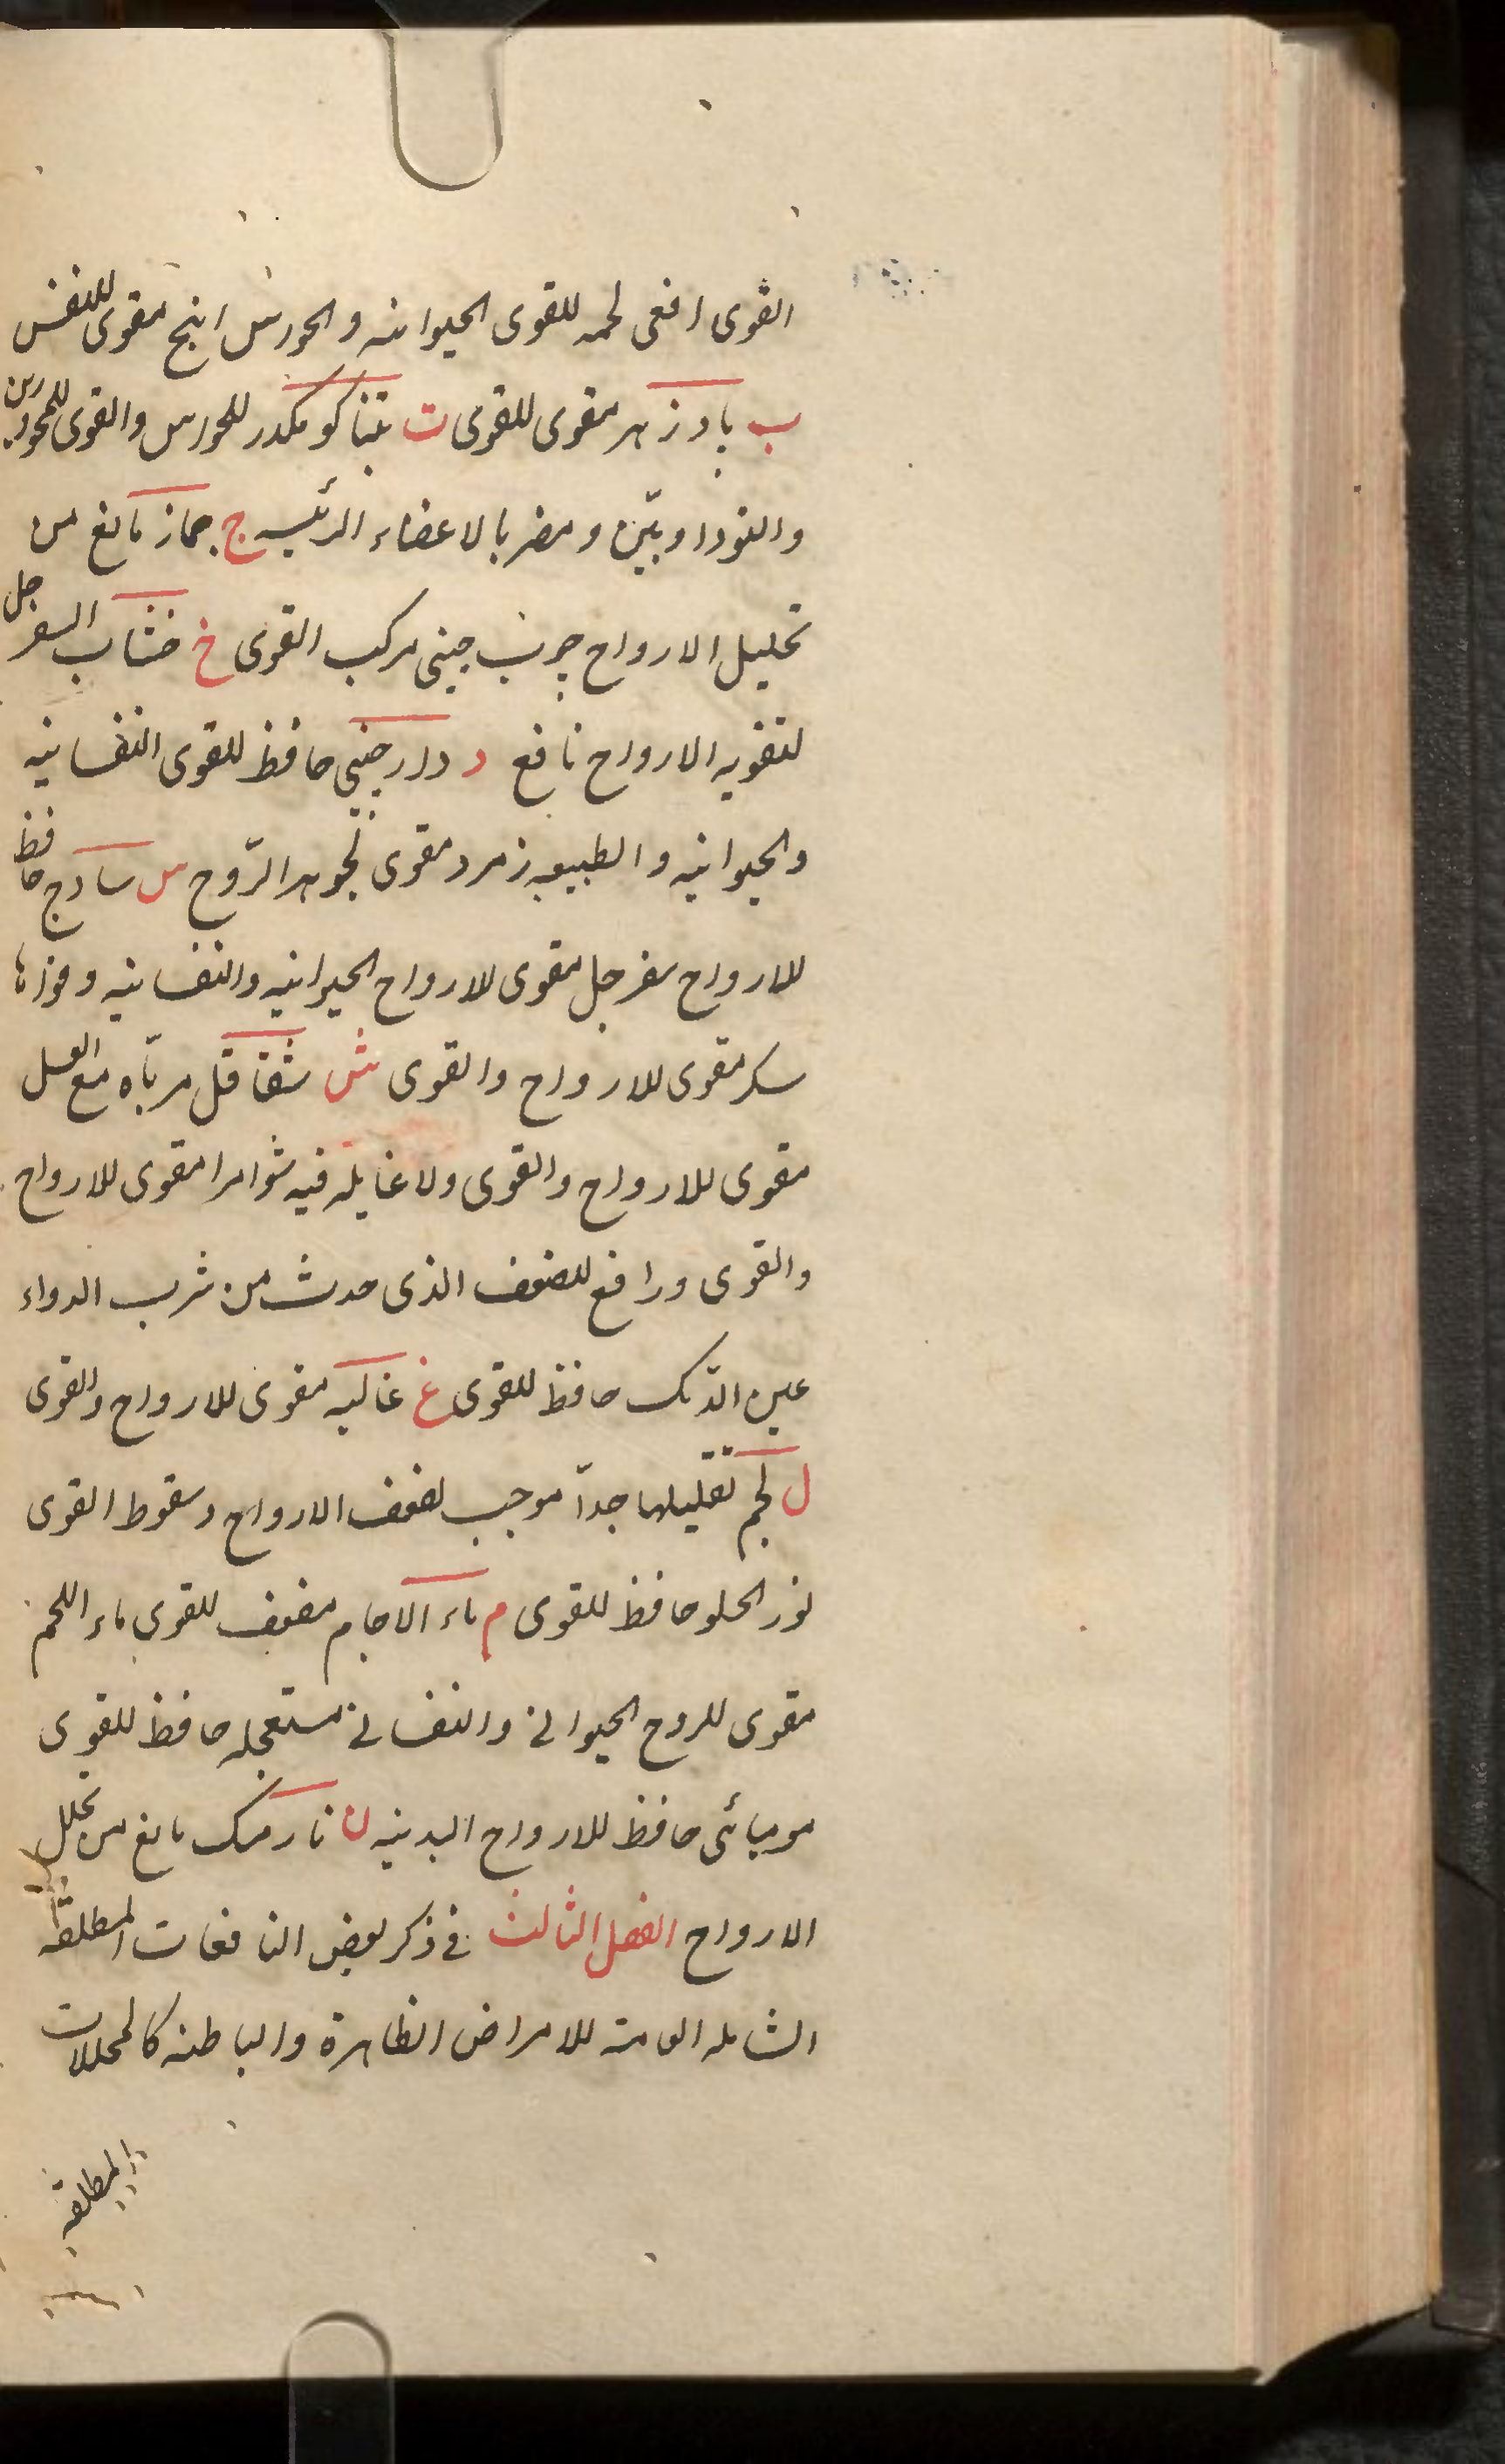 القوى افعى لحمه للقوى الحيوانيه والحواس انبج مقوى للنفس
ب بادزهر مقوى للقوى ت تنباكو مكدر للحواس والقوى للمحرورين
والسوداويين ومضر بالاعضاء الرئيسه ج جماز مانع من
تحليل الارواح چوب چينى مركب القوى خ خشاب السفرجل
لتقويه الارواح نافع د دارچينى حافظ للقوى النفسانيه
والحيوانيه والطبيعيه زمرد مقوى لجوهر الرّوح س سادج حافظ
للارواح سفرجل مقوى للارواح الحيوانيه والنفسانيه وقواها
سكر مقوى للارواح والقوى ش شقاقل مربّاه مع العسل
مقوى للارواح والقوى ولا غايله فيه شوامرا مقوى للارواح
والقوى ورافع للضعف الذى حدث من شرب الدواء
عين الدّيك حافظ للقوى غ غاليه مقوى للارواح والقوى
ل لحم تقليلها جدّا موجب لضعف الارواح وسقوط القوى
لوز الحلو حافظ للقوى م ماء الاجام مضعف للقوى ماء اللحم
مقوى للروح الحيوانى والنفسانى مستعجله حافظ للقوى
موميائى حافظ للارواح البدنيه ن نارمشك مانع من تحلل
الارواح الفصل الثالث فى ذكر بعض النافعات المطلقه
الشامله العامة للامراض الظاهرة والباطنه كالمحللات
المطلقه